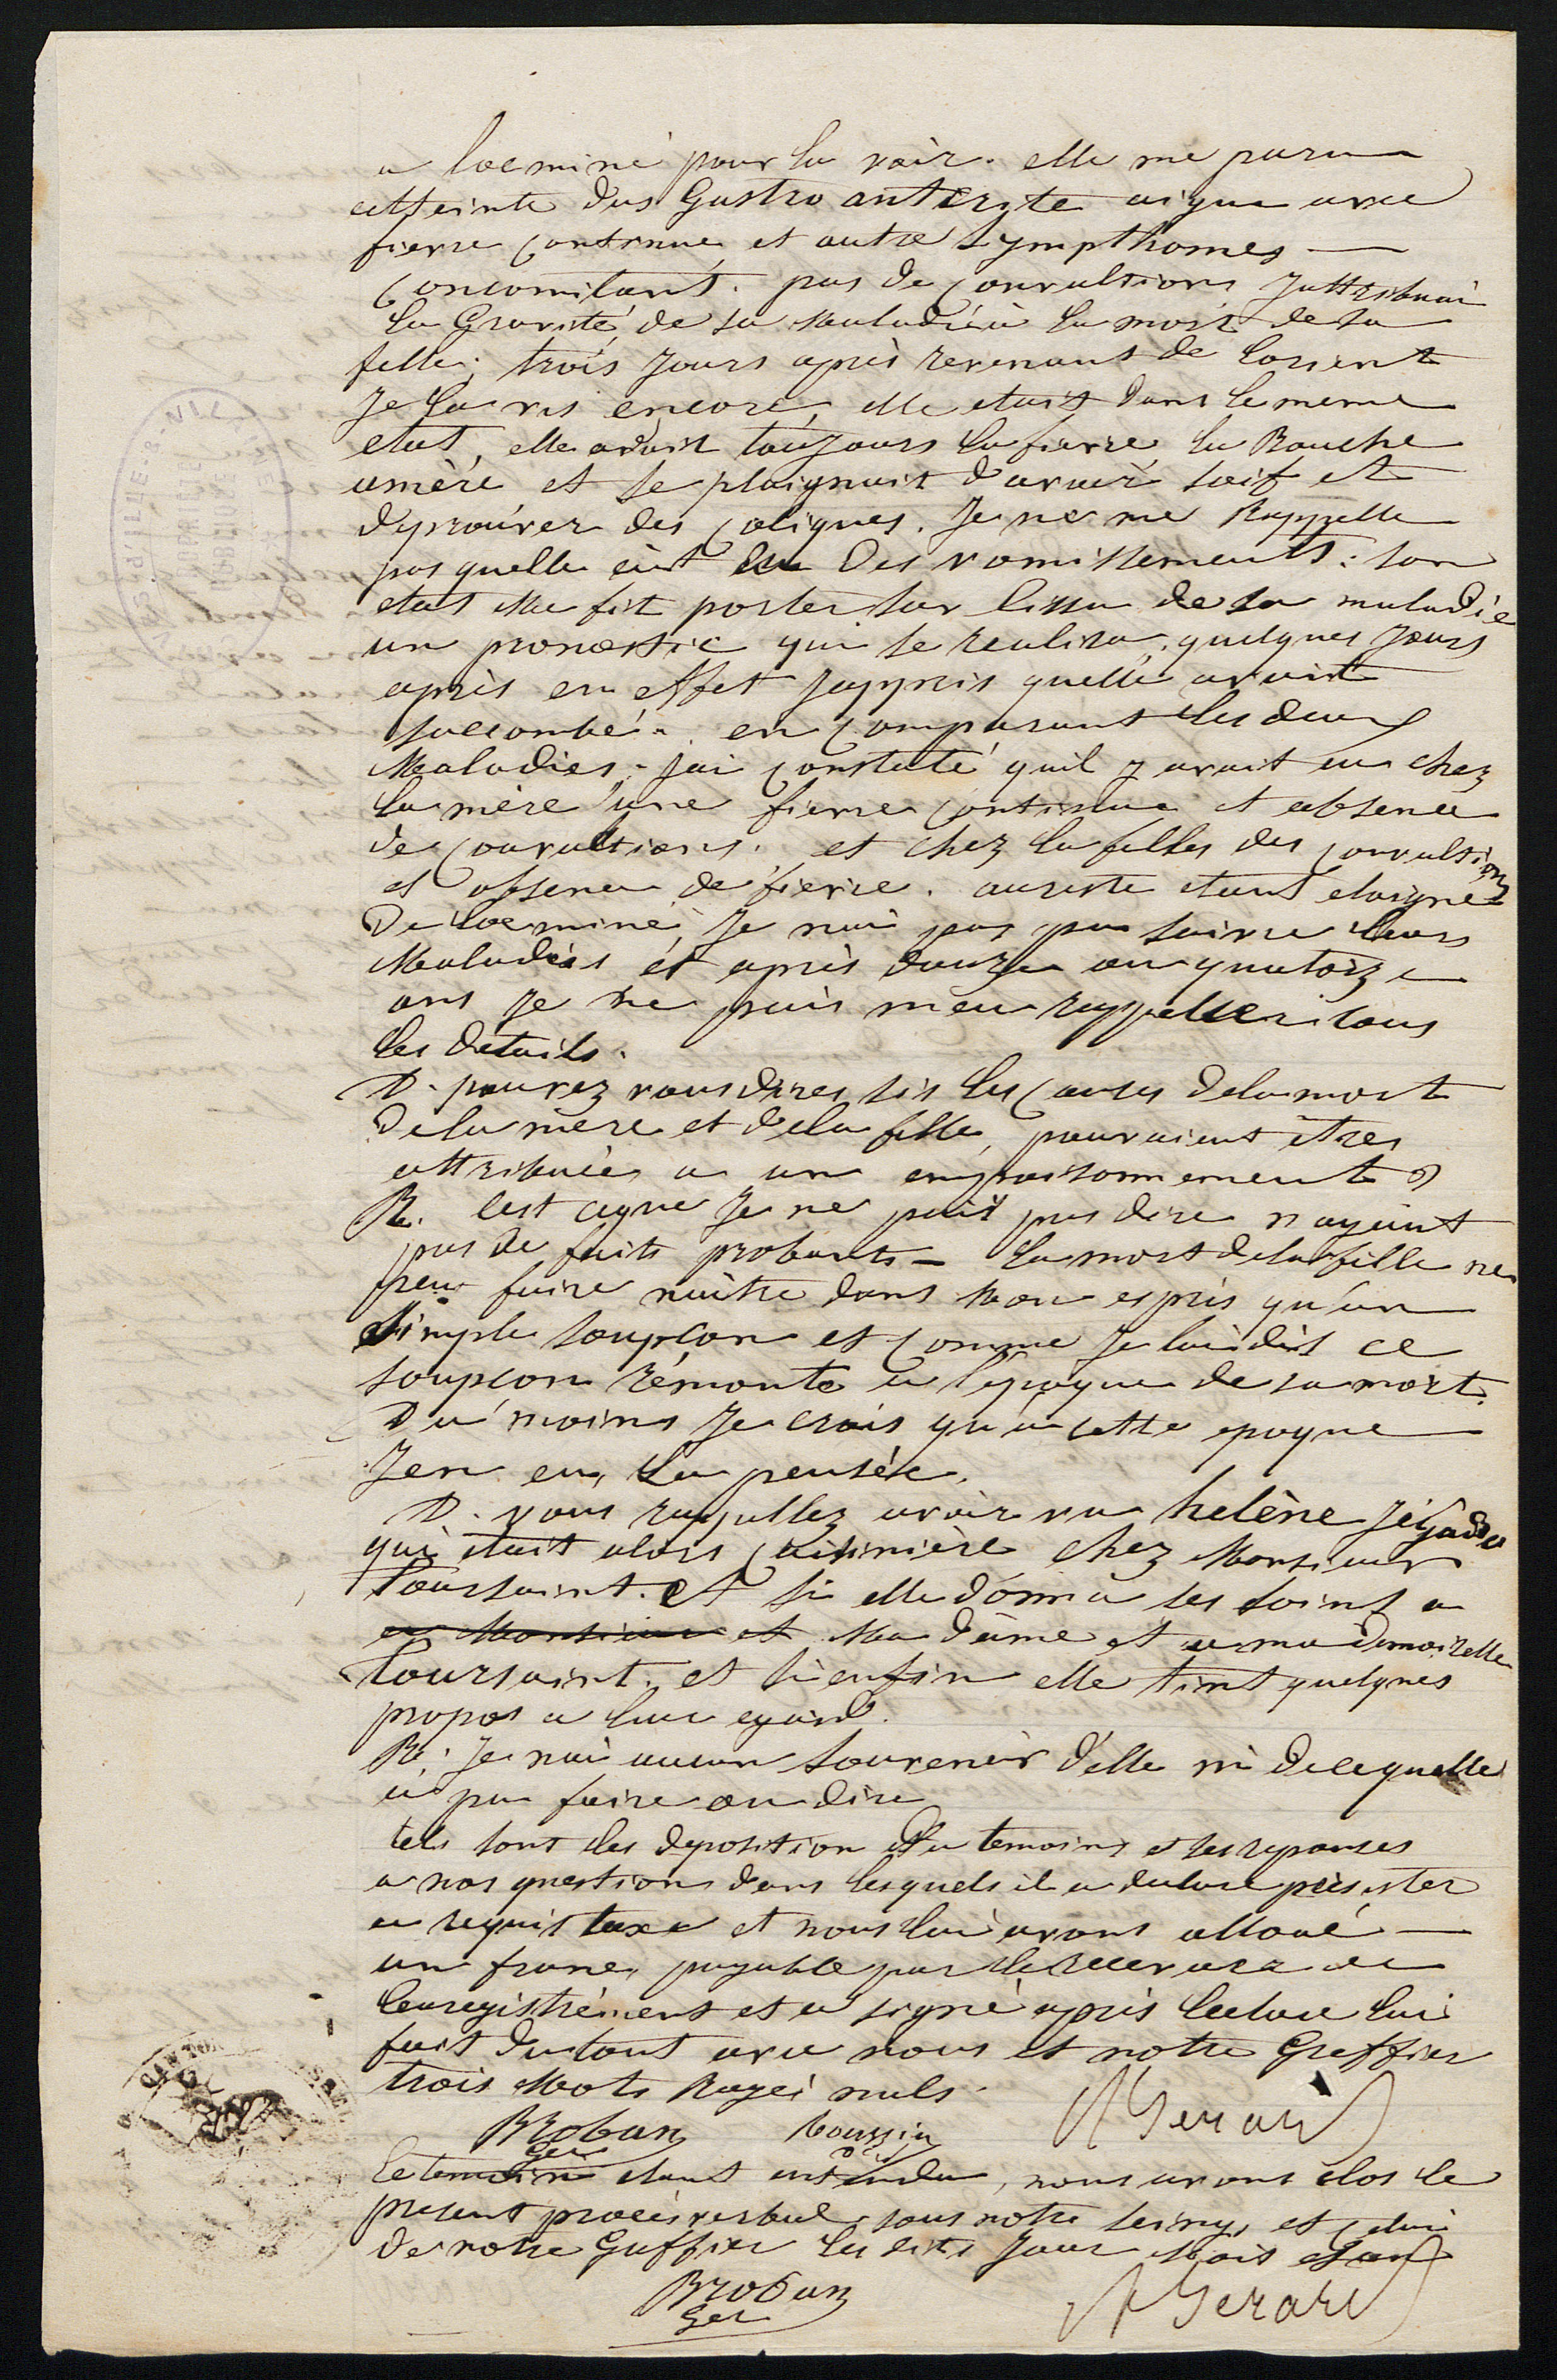 a locminé pour la voir. elle me parue
atteinte dus Gastro antérite aigue avec
fievre continue et autre Sympthomes —
Concomitant. pas de convultions Jattribuai
la Gravité de sa Maladie à la mort de sa
fille; trois Jours après revenant de Lorient
Je la vis encore, elle etait dans le meme
etat, elle avait toujours la fievre, la Bouche
amère et se plaignait d'avoir soif et
deprouver des coliques. Je ne me Rappelle
pas quelle eut eu Des vomissements: son
etat Me fit porter sur lissu de sa maladie
un pronostic qui se realisa. quelques Jours
après en effet Jappris quelle avait
succombé. en comparant les deux
Maladies. jai constaté quil y avait eu chez
la mère une fievre continue et absence
de convultions. et chez la filles des convultions
et absence de fievre. aureste etant eloigné
De locminé, Je nai pas pu suivre leurs
Maladies et après douze ou quatorze
ans Je ne puis men rappeller tous
les details.
D. pouvez vous dires sis les causes delamort
Delamère et delafille, pouvaient êtres
attribuées a un empoisonnement?
R. cest ceque Je ne puis pas dire n'ayant
pas de faits probants — la mort delafille ne
peu faire naître dans Mon espris qu'un
Simple soupcon et comme Je lai dit ce
soupcon rémonte a l'epoque de sa mort.
Du moins Je crois qu'a cette epoque
Jen eu, la pensée.
D. vous rappellez avoir vu helène Jégado
qui était alors cuisinière chez Monsieur
Toursaint. et si elle donna ses soins a
a Monsieur et Ma dame et a ma demoiselle
Toursaint. et si enfin elle tint quelques
propos a leur egard.
R. Je nai aucun souvenir d'elle ni de cequelle
a pu faire ou dire
tels sont les deposition du temoins et ses reponses
a nos questions dans lesquels il a déclaré persister
a requis taxe et nous lui avons alloué —
un franc, payable par le receveur de
lenregistrément et a signé après lecture lui
fait du tout avec nous et notre Greffier
trois Mots Rayés nuls.
Broban
Ger
Gerard
Le temoin etant entendu, nous avons clos le
present procès verbal sous notre seing, et celui
De notre Greffier les dits Jour Mois et an
Broban
Ger
Gerard